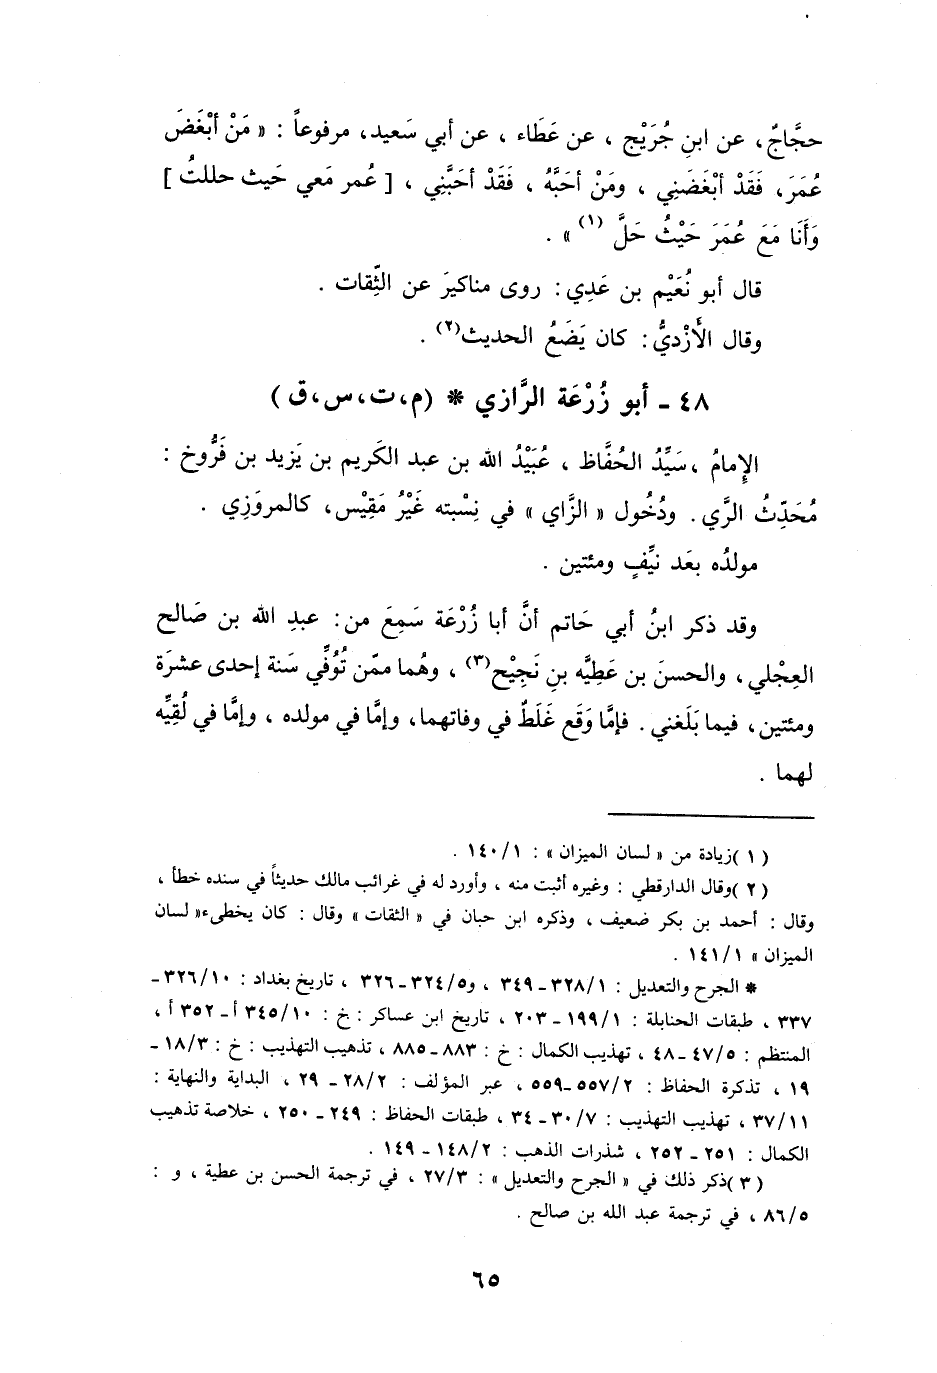 حجَّاجٌ، عن ابنِ جُرَيْج ، عن عَطَاء ، عن أبي سَعيد، مرفوعاً : « مَنْ أبْغَضَ
عُمَرَ، فَقَدْ أبْغَضَنِي ، ومَنْ أحَبَّهُ ، فَقَدْ أحَبَّنِي ، [ عُمر مَعي حَيث حللتُ ]
وَأَنَا مَعَ عُمَرَ حَيْثُ حَلَّ (١) » .
قال أبو نُعَيْم بن عَدِي : روى مناكيرَ عن الثِّقات .
وقال الأَزْديُّ : كان يَضَعُ الحديث(٢) .
٤٨ ـ أبو زُرْعَة الرَّازي * (م، ت، س، ق )
الإِمامُ ، سَيِّدُ الحُفَّاظ ، عُبَيْدُ الله بن عبد الكَريم بن يَزيد بن فَرُّوخ :
مُحَدِّثُ الرَّي . ودُخُول « الزَّاي » في نِسْبته غَيْرُ مَقِيْس، كالمروَزِي .
مولدُه بعَد نيِّفٍ ومئتين .
وقد ذكر ابنُ أبي حَاتم أنَّ أبا زُرْعَة سَمِعَ من : عبدِ الله بن صَالح
العِجْلي ، والحسنَ بن عَطِيَّه بنِ نَجِيْح(٣) ، وهُما ممّن تُوُفِّي سَنة إحدى عشرَة
ومئتين، فيما بَلَغني . فإمَّا وَقَع غَلَطٌ في وفاتهما، وإمَّا في مولده ، وإمَّا في لُقِيِّه
لهما .
( ١ )زيادة من « لسان الميزان » : ١/ ١٤٠ .
( ٢ )وقال الدارقطي : وغيره أثبت منه ، وأورد له في غرائب مالك حديثاً في سنده خطأ ،
وقال : أحمد بن بكر ضعيف ، وذكره ابن حبان في « الثقات » وقال : كان يخطىء« لسان
الميزان » ١/ ١٤١ .
* الجرح والتعديل : ١/ ٣٢٨ ـ ٣٤٩ ، و٥/ ٣٢٤ ـ ٣٢٦ ، تاريخ بغداد : ١٠/ ٣٢٦ ـ
٣٣٧ ، طبقات الحنابلة : ١/ ١٩٩ ـ ٢٠٣ ، تاريخ ابن عساكر : خ : ١٠/ ٣٤٥ أ ـ ٣٥٢ أ ،
المنتظم : ٥/ ٤٧ ـ ٤٨ ، تهذيب الكمال : خ : ٨٨٣ ـ ٨٨٥ ، تذهيب التهذيب : خ : ٣/ ١٨ ـ
١٩ ، تذكرة الحفاظ : ٢/ ٥٥٧ ـ ٥٥٩ ، عبر المؤلف : ٢/ ٢٨ ـ ٢٩ ، البداية والنهاية :
١١/ ٣٧ ، تهذيب التهذيب : ٧/ ٣٠ ـ ٣٤ ، طبقات الحفاظ : ٢٤٩ ـ ٢٥٠ ، خلاصة تذهيب
الكمال : ٢٥١ ـ ٢٥٢ ، شذرات الذهب : ٢/ ١٤٨ ـ ١٤٩ .
( ٣ )ذكر ذلك في « الجرح والتعديل » : ٣/ ٢٧ ، في ترجمة الحسن بن عطية ، و :
٥/ ٨٦ ، في ترجمة عبد الله بن صالح .
٦٥